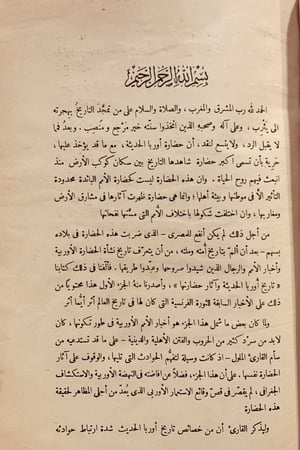 بسم الله الرحمن الرحيم
الحمد لله رب المشرق والمغرب، والصلاة والسلام على من تمجد التاريخ بهجرته
الى يثرب، وعلى آله وصحبه الذين اتخذوا سنته خير مرجع ومنصب. وبعد فما
لا يقبل الرد، ولا يسع لنقد، أن حضارة أوربا الحديثة، مع ما قد يؤخذ عليها،
حرية بأن تسمى أكبر حضارة شاهدها التاريخ بين سكان كوكب الأرض منذ
انبعث فيهم روح الحياة. وان هذه الحضارة ليست كحضارة الأمم البائدة محدودة
التأثير الا في موطنها وبيئة أهلها؛ وانما هى حضارة ظهرت آثارها في مشارق الأرض
ومغاربها، وان اختلفت شكولها باختلاف الأمم التى مستها نفحاتها
من أجل ذلك لم يكن أنفع للمصرى - الذى ضربت هذه الحضارة فى بلاده
بسهم - بعد أن ألم بتاريخ أمته وملته، من أن يتعرف تاريخ نشأة الحضارة الأوربية
وأخبار الأمم والرجال الذين شيدوا صروحها وعبدوا طريقها. فألفنا فى ذلك كتابنا
« تاريخ أوربا الحديثة وآثار حضارتها »، وأصدرنا منه الجزء الأول هذا محتويا من
ذلك على الأخبار السابقة للثورة الفرنسية التى كان لها فى تاريخ العالم أثر أيما أثر
ولما كان بعض ما شمل هذا الجزء هو أخبار الأمم الأوربية فى طور تكونها، كان
لابد من سرد كثير من الحروب والفتن الأهلية والدينية - على ما قد تستدعيه من
سأم القارئ الملول - اذ كانت وسيلة لتفهم الحوادث التى تليها، والوقوف على آثار
الحضارة نفسها. على أن هذا الجزء، فضلا عن افاضته فى النهضة الأوربية والاستكشاف
الجغرافى، لم يقصر فى قص وقائع الاستعمار الأوربى الذى يعد من أجلى المظاهر لحقيقة
هذه الحضارة
وليذكر القارئ أن من خصائص تاريخ أوربا الحديث شدة ارتباط حوادثه